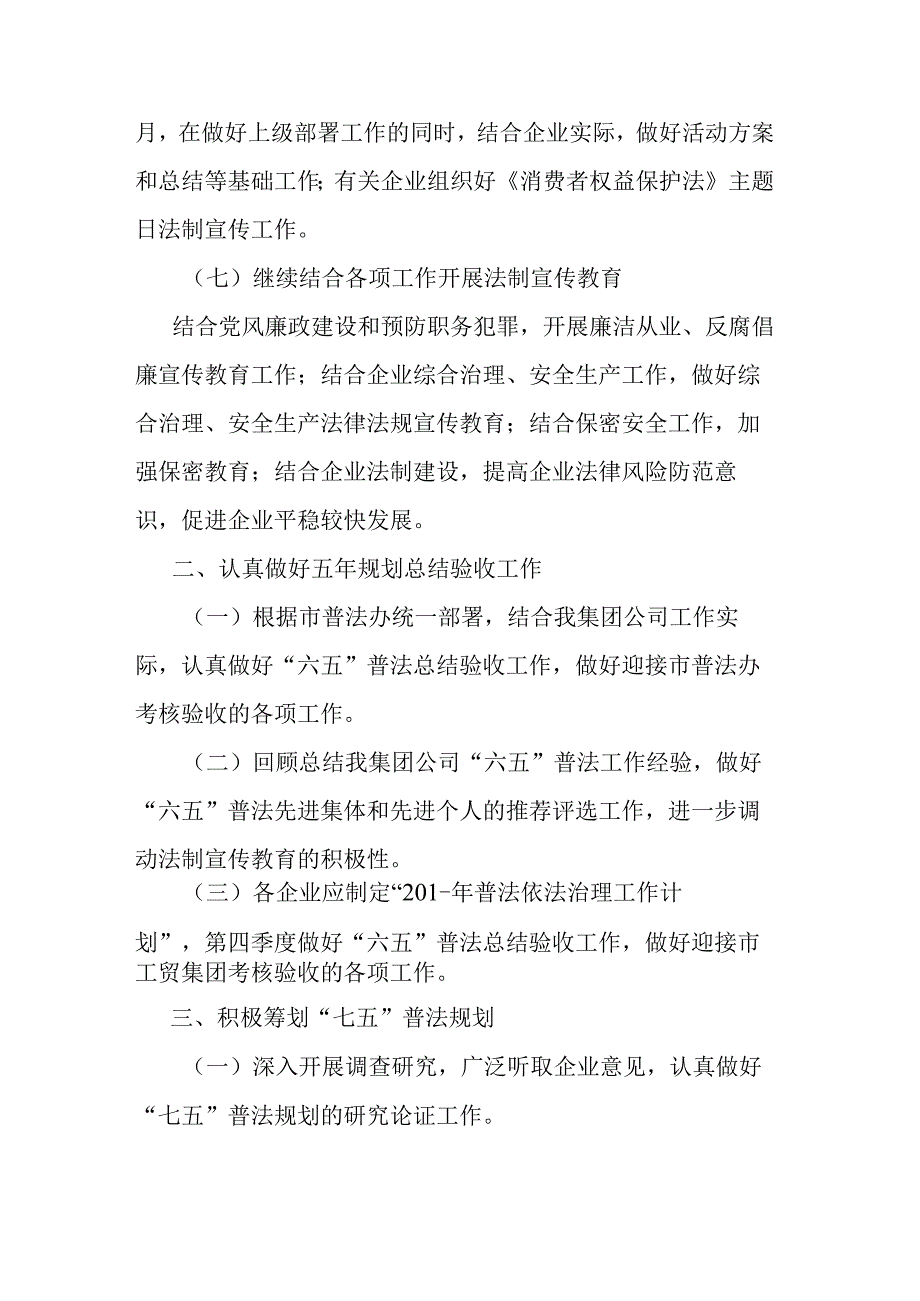 月，在做好上级部署工作的同时，结合企业实际，做好活动方案
和总结等基础工作；有关企业组织好《消费者权益保护法》主题
日法制宣传工作。
（七）继续结合各项工作开展法制宣传教育
结合党风廉政建设和预防职务犯罪，开展廉洁从业、反腐倡
廉宣传教育工作；结合企业综合治理、安全生产工作，做好综
合治理、安全生产法律法规宣传教育；结合保密安全工作，加
强保密教育；结合企业法制建设，提高企业法律风险防范意
识，促进企业平稳较快发展。
二、认真做好五年规划总结验收工作
（一）根据市普法办统一部署，结合我集团公司工作实
际，认真做好“六五”普法总结验收工作，做好迎接市普法办
考核验收的各项工作。
（二）回顾总结我集团公司“六五”普法工作经验，做好
“六五”普法先进集体和先进个人的推荐评选工作，进一步调
动法制宣传教育的积极性。
（三）各企业应制定“201-年普法依法治理工作计
划”，第四季度做好“六五”普法总结验收工作，做好迎接市
工贸集团考核验收的各项工作。
三、积极筹划“七五”普法规划
（一）深入开展调查研究，广泛听取企业意见，认真做好
“七五”普法规划的研究论证工作。